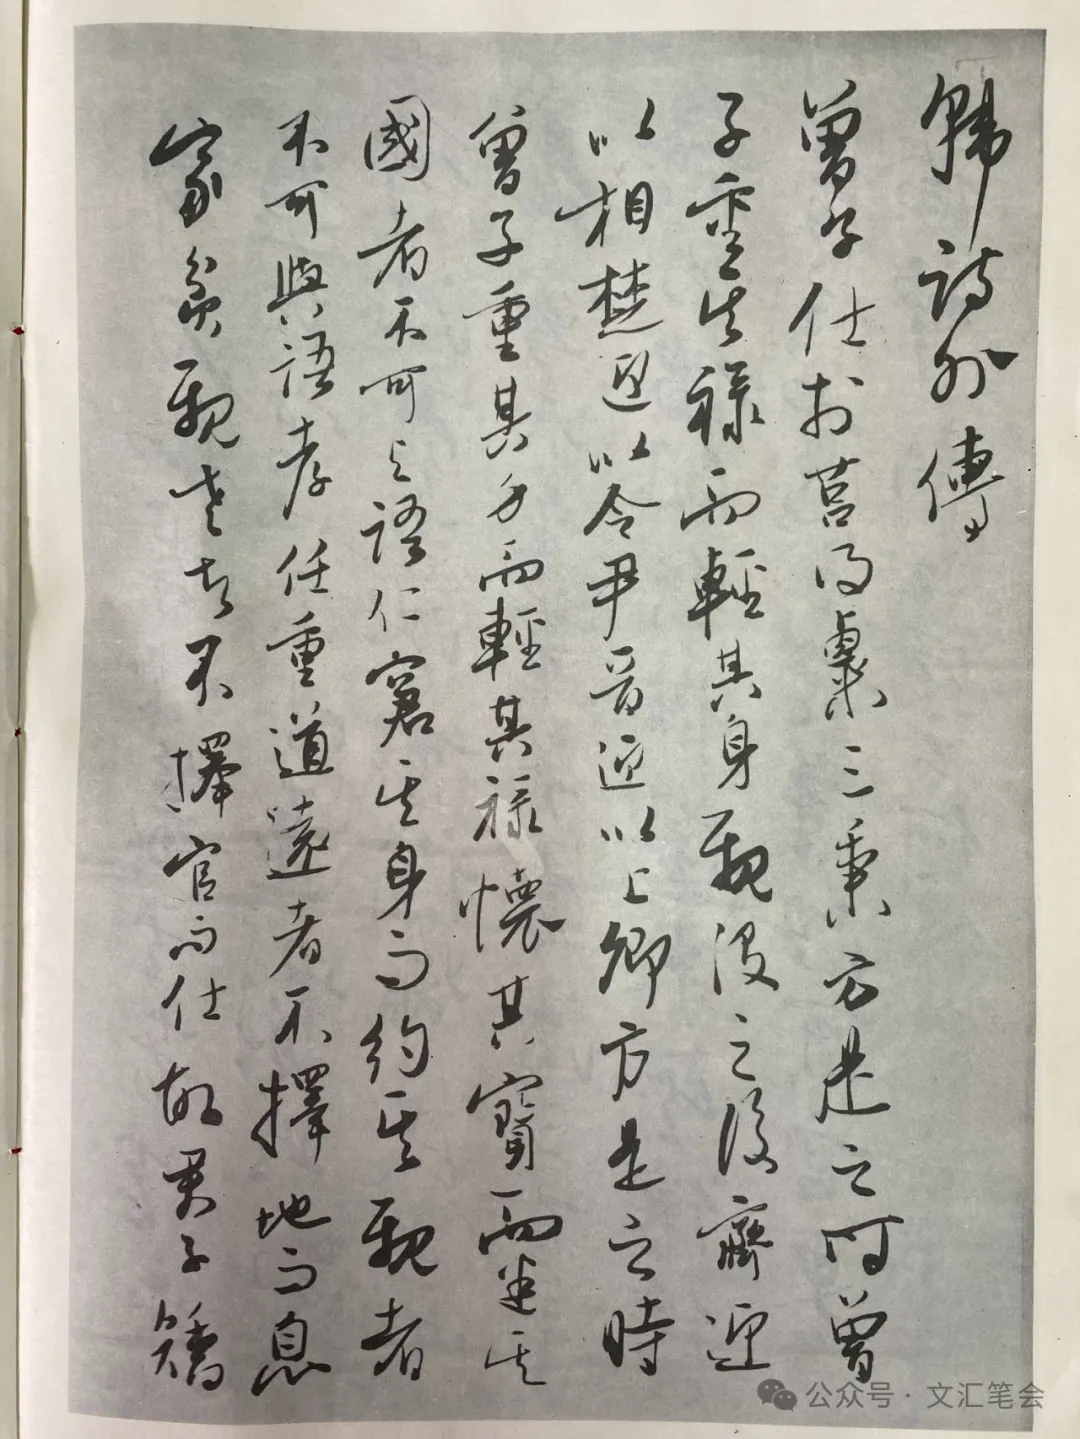 韩詩外傳
曾子仕於莒得粟三秉方是之时曾
子重其禄而輕其身親没之後齊迎
以相楚迎以令尹晋迎以上卿方是之時
曾子重其身而輕其禄懷其寶而迷其
國者不可与語仁窘其身而約其親者
不可與語孝任重道遠者不擇地而息
家貧親老者不擇官而仕故君子矯
公众号·文汇笔会